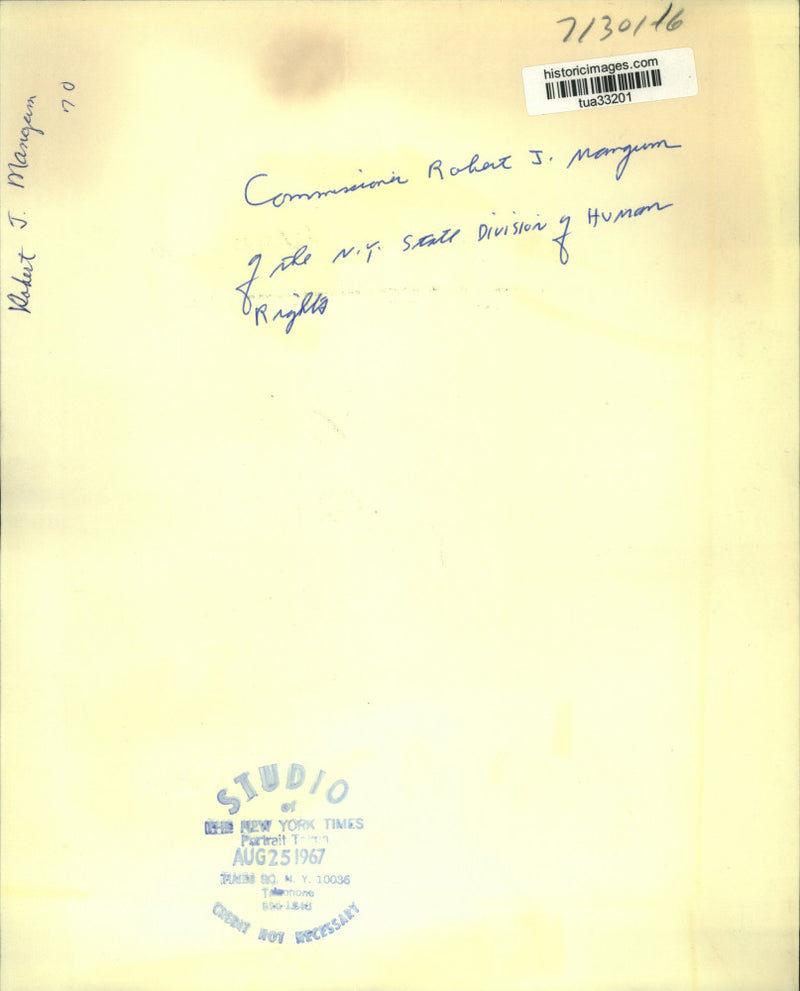 historicimages.com
tua33201
Robert J. Mangum
70
Commissioner Robert J. Mangum
of the N.Y. State Division of Human
Rights
STUDIO
of
THE NEW YORK TIMES
Portrait Taken
AUG 25 1967
TIMES SQ. N. Y. 10036
Telephone
CREDIT NOT NECESSARY